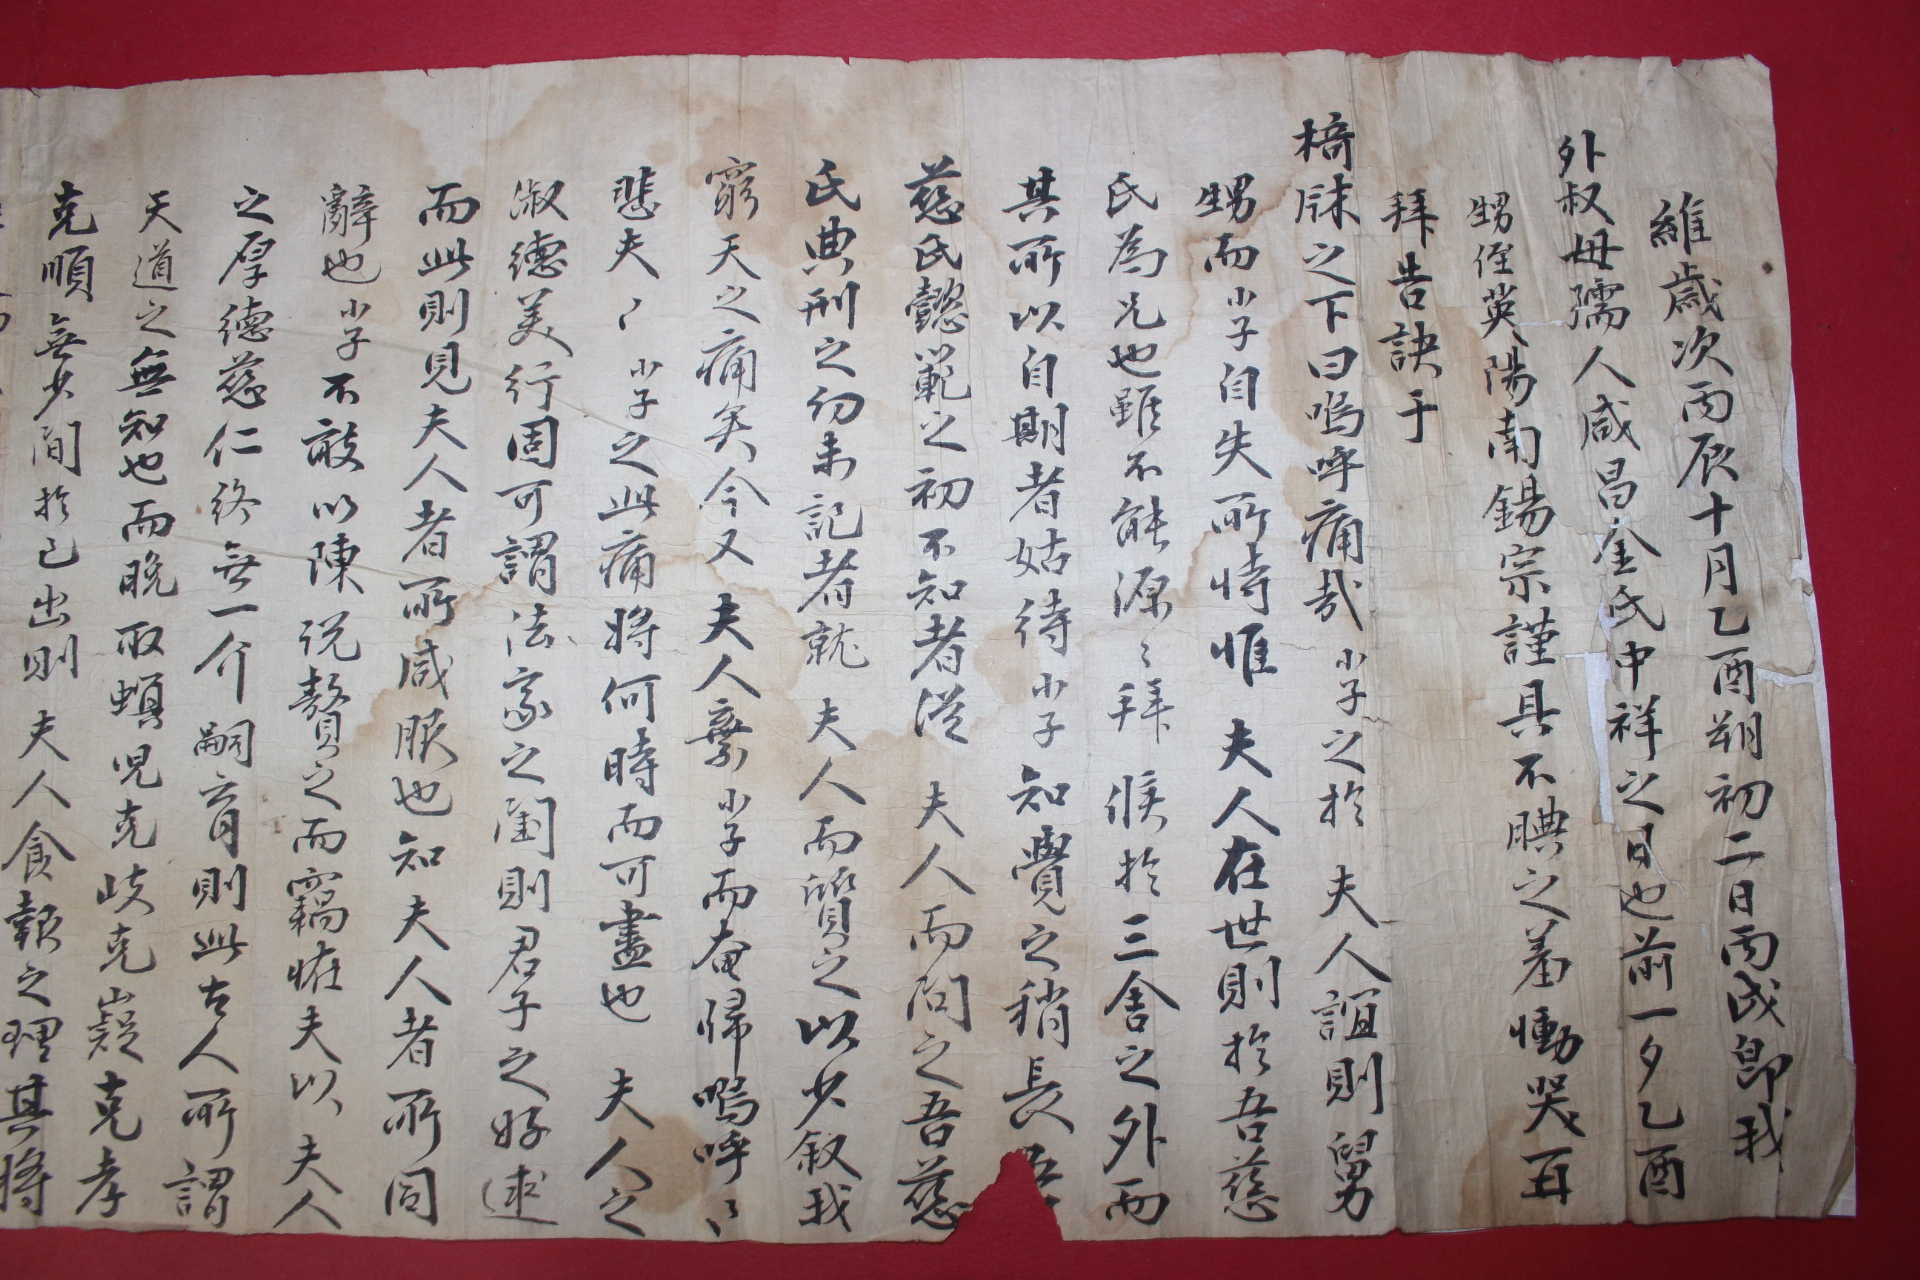 維歲次丙辰十月乙酉朔初二日丙戌卽我
外叔母孺人咸昌金氏中祥之日也前一夕乙酉
甥侄英陽南錫宗謹具不腆之羞慟哭再
拜告訣于
椅牀之下曰嗚呼痛哉小子之於 夫人誼則舅
甥而小子自失所恃惟 夫人在世則於吾慈
氏為兄也雖不能源〻拜候於三舍之外而
其所以自期者姑待小子知覺之稍長吾
慈氏懿範之初不知者從 夫人而問之吾慈
氏典刑之仞未記者就 夫人而質之以少敘我
窮天之痛矣今又 夫人棄小子而奄歸嗚呼〻
悲夫〻小子之此痛將何時而可盡也 夫人之
淑德美行固可謂法家之閫則君子之好逑
而此則見夫人者所咸服也知夫人者所同
辭也小子不敢以陳說贅之而竊惟夫以夫人
之厚德慈仁終無一介嗣育則此古人所謂
天道之無知也而晚取螟児克岐克嶷克孝
克順無少間於己出則 夫人食報之理其將